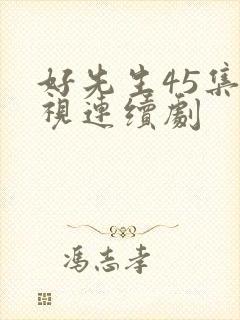 好先生45集
視連續劇
馮志孝